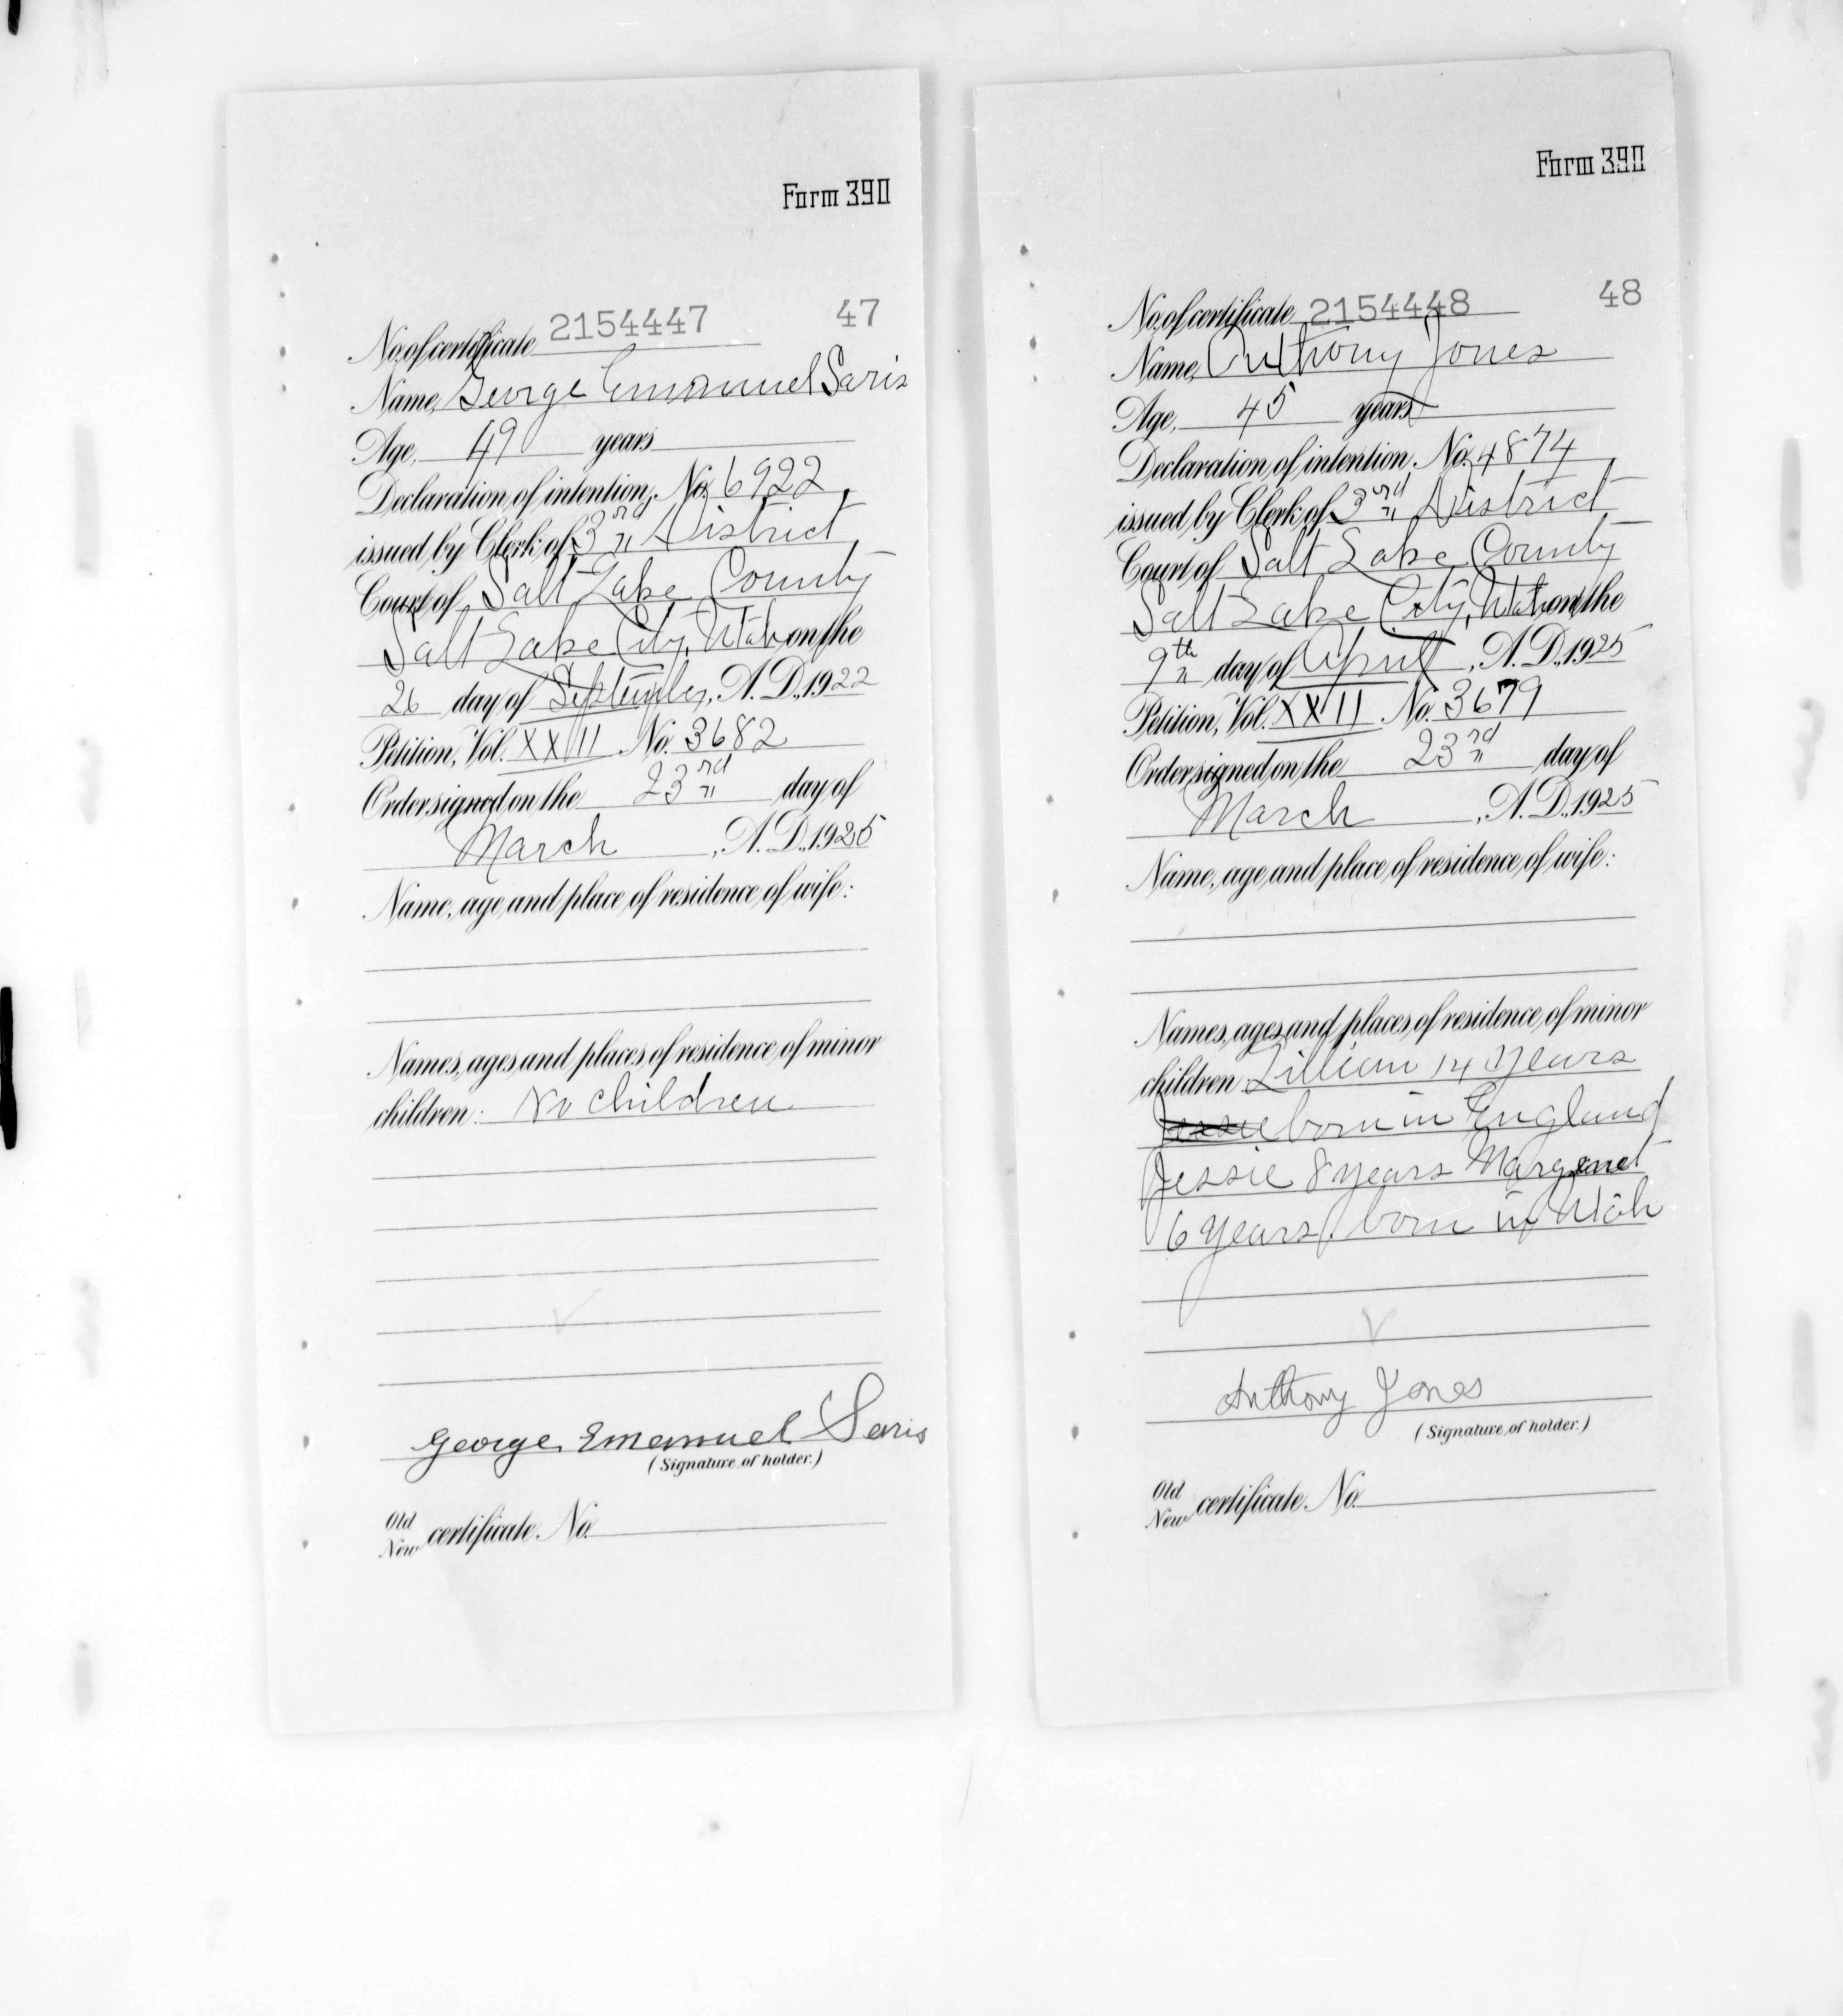 Form 390
No. of certificate 2154447 47
Name, George Emanuel Saris
Age, 49 years
Declaration of intention, No. 6922
issued by Clerk of 3rd District
Court of Salt Lake County
Salt Lake City, Utah on the
26 day of September, A. D., 1922
Petition, Vol. XXII No. 3682
Order signed on the 23rd day of
March, A. D., 1925
Name, age and place of residence of wife:
Names, ages and places of residence of minor
children: No children
George Emanuel Saris
(Signature of holder.)
Old
New certificate No.
Form 390
No. of certificate 2154448 48
Name, Anthony Jones
Age, 45 years
Declaration of intention, No. 4874
issued by Clerk of 3rd District
Court of Salt Lake County
Salt Lake City, Utah on the
9th day of April, A. D., 1925
Petition, Vol. XXII No. 3679
Order signed on the 23rd day of
March, A. D., 1925
Name, age and place of residence of wife:
Names, ages and places of residence of minor
children: Lillian 14 years
born in England
Jessie 8 years Margaret
6 years. born in Utah
Anthony Jones
(Signature of holder.)
Old
New certificate No.